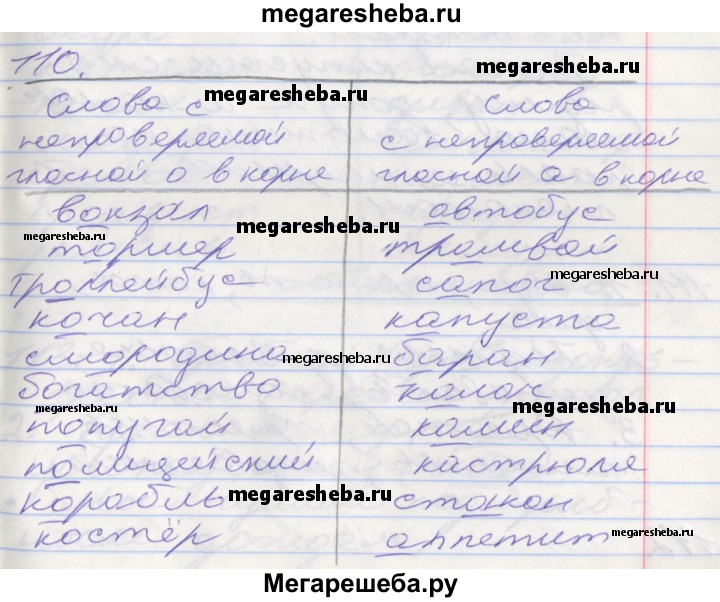 megaresheba.ru
110.
megaresheba.ru
Слова с
megaresheba.ru
Слова
непроверяемой
с непроверяемой
гласной о в корне
гласной а в корне
вокзал
автобус
megaresheba.ru
megaresheba.ru
торшер
трамвай
троллейбус
сапог
megaresheba.ru
кочан
капуста
смородина
megaresheba.ru
баран
богатство
калач
megaresheba.ru
megaresheba.ru
попугай
камин
полицейский
кастрюля
корабль
megaresheba.ru
стакан
костёр
аппетит
megaresheba.ru
Мегарешеба.ру